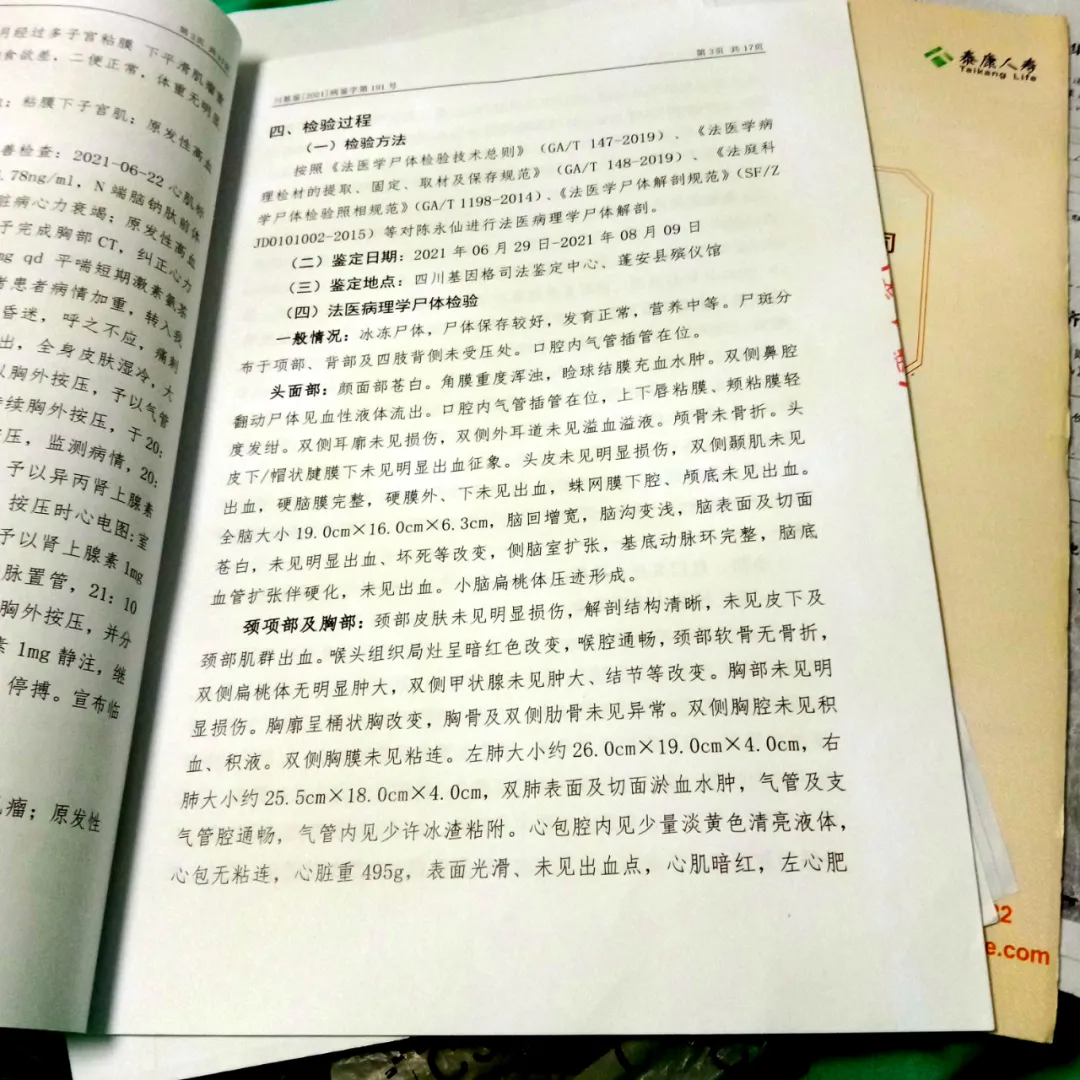 第2页 共17页
月经过多子宫粘膜 下平滑肌瘤蒙
食欲差，二便正常，体重无明显
：粘膜下子宫肌；原发性高血
善检查：2021-06-22 心肌标
.78ng/ml，N 端脑钠肽前体
脏病心力衰竭；原发性高血
子完成胸部 CT，纠正心力
mg qd 平喘短期激素氨茶
考患者病情加重，转入我
昏迷，呼之不应，痛刺
出，全身皮肤湿冷，大
以胸外按压，予以气管
持续胸外按压，于 20:
压，监测病情，20:
予以异丙肾上腺素
按压时心电图:室
予以肾上腺素 1mg
脉置管，21：10
胸外按压，并分
素 1mg 静注，继
停搏。宣布临
瘤；原发性
川基鉴[2021]病鉴字第 101 号
第3页 共17页
四、检验过程
（一）检验方法
按照《法医学尸体检验技术总则》（GA/T 147-2019）、《法医学病
理检材的提取、固定、取材及保存规范》（GA/T 148-2019）、《法庭科
学尸体检验照相规范》（GA/T 1198-2014）、《法医学尸体解剖规范》（SF/Z
JD0101002-2015）等对陈永仙进行法医病理学尸体解剖。
（二）鉴定日期：2021 年 06 月 29 日-2021 年 08 月 09 日
（三）鉴定地点：四川基因格司法鉴定中心、蓬安县殡仪馆
（四）法医病理学尸体检验
一般情况：冰冻尸体，尸体保存较好，发育正常，营养中等。尸斑分
布于项部、背部及四肢背侧未受压处。口腔内气管插管在位。
头面部：颜面部苍白。角膜重度浑浊，睑球结膜充血水肿。双侧鼻腔
翻动尸体见血性液体流出。口腔内气管插管在位，上下唇粘膜、颊粘膜轻
度发绀。双侧耳廓未见损伤，双侧外耳道未见溢血溢液。颅骨未骨折。头
皮下/帽状腱膜下未见明显出血征象。头皮未见明显损伤，双侧颞肌未见
出血，硬脑膜完整，硬膜外、下未见出血，蛛网膜下腔、颅底未见出血。
全脑大小 19.0cm×16.0cm×6.3cm，脑回增宽，脑沟变浅，脑表面及切面
苍白，未见明显出血、坏死等改变，侧脑室扩张，基底动脉环完整，脑底
血管扩张伴硬化，未见出血。小脑扁桃体压迹形成。
颈项部及胸部：颈部皮肤未见明显损伤，解剖结构清晰，未见皮下及
颈部肌群出血。喉头组织局灶呈暗红色改变，喉腔通畅，颈部软骨无骨折，
双侧扁桃体无明显肿大，双侧甲状腺未见肿大、结节等改变。胸部未见明
显损伤。胸廓呈桶状胸改变，胸骨及双侧肋骨未见异常。双侧胸腔未见积
血、积液。双侧胸膜未见粘连。左肺大小约 26.0cm×19.0cm×4.0cm，右
肺大小约 25.5cm×18.0cm×4.0cm，双肺表面及切面淤血水肿，气管及支
气管腔通畅，气管内见少许冰渣粘附。心包腔内见少量淡黄色清亮液体，
心包无粘连，心脏重 495g，表面光滑、未见出血点，心肌暗红，左心肥
泰康人寿
Taikang Life
司
e.com